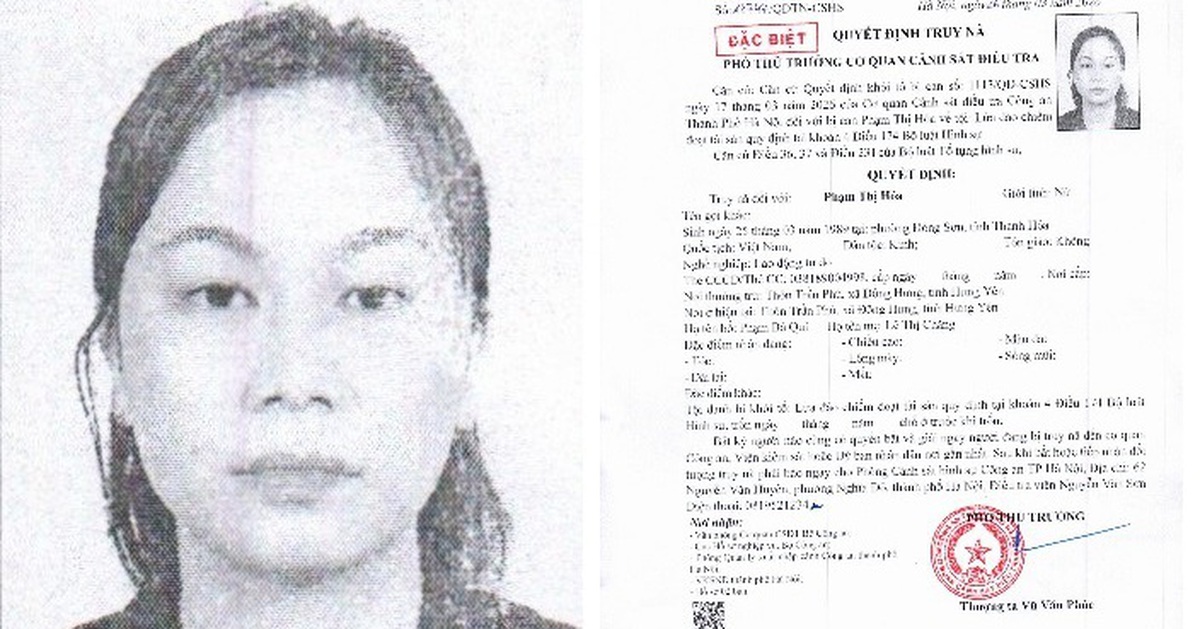 Số: /QDTN-CSHS
Hà Nội, ngày 26 tháng 03 năm
ĐẶC BIỆT
QUYẾT ĐỊNH TRUY NÃ
PHÓ THỦ TRƯỞNG CƠ QUAN CẢNH SÁT ĐIỀU TRA
Căn cứ: Căn cứ Quyết định khởi tố bị can số: 1113/QĐ-CSHS
ngày 17 tháng 03 năm 2026 của Cơ quan Cảnh sát điều tra Công an
Thành Phố Hà Nội đối với bị can Phạm Thị Hóa về tội: Lừa đảo chiếm
đoạt tài sản quy định tại khoản 4 Điều 174 Bộ luật Hình sự
Căn cứ Điều 36, 37 và Điều 231 của Bộ luật Tố tụng hình sự,
QUYẾT ĐỊNH:
Truy nã đối với: Phạm Thị Hóa Giới tính: Nữ
Tên gọi khác:
Sinh ngày 25 tháng 03 năm 1988 tại: phường Đông Sơn, tỉnh Thanh Hóa
Quốc tịch: Việt Nam; Dân tộc: Kinh; Tôn giáo: Không
Nghề nghiệp: Lao động tự do
Thẻ CCCD/Thẻ CC: cấp ngày tháng năm . Nơi cấp:
Nơi thường trú: Thôn Trần Phú, xã Đông Hưng, tỉnh Hưng Yên
Nơi ở hiện tại: Thôn Trần Phú, xã Đông Hưng, tỉnh Hưng Yên
Họ tên bố: Phạm Bá Quí Họ tên mẹ: Lê Thị
Đặc điểm nhân dạng: - Chiều cao: - Màu da:
- Tóc: - Lông mày: - Sống mũi:
- Dái tai: - Mắt:
Đặc điểm khác:
Tội danh bị khởi tố: Lừa đảo chiếm đoạt tài sản quy định tại khoản 4 Điều 174 Bộ luật
Hình sự, trốn ngày tháng năm chỗ ở trước khi trốn.
Bất kỳ người nào cũng có quyền bắt và giải ngay người đang bị truy nã đến cơ quan
Công an, Viện kiểm sát hoặc Uỷ ban nhân dân nơi gần nhất. Sau khi bắt hoặc tiếp nhận đối
tượng truy nã phải báo ngay cho Phòng Cảnh sát hình sự Công an TP Hà Nội, Địa chỉ: 67
Nguyễn Văn Huyên, phường Nghĩa Đô, thành phố Hà Nội, Điều tra viên Nguyễn Văn Sơn
Điện thoại:
PHÓ THỦ TRƯỞNG
Nơi nhận:
- Văn phòng Cơ quan CSĐT Bộ Công an;
- Cục Hồ sơ nghiệp vụ, Bộ Công an;
- Phòng Quản lý xuất nhập cảnh Công an thành phố
Hà Nội;
- thành phố Hà Nội;
- Hồ sơ 02 bản
Thượng tá Vũ Văn Phúc